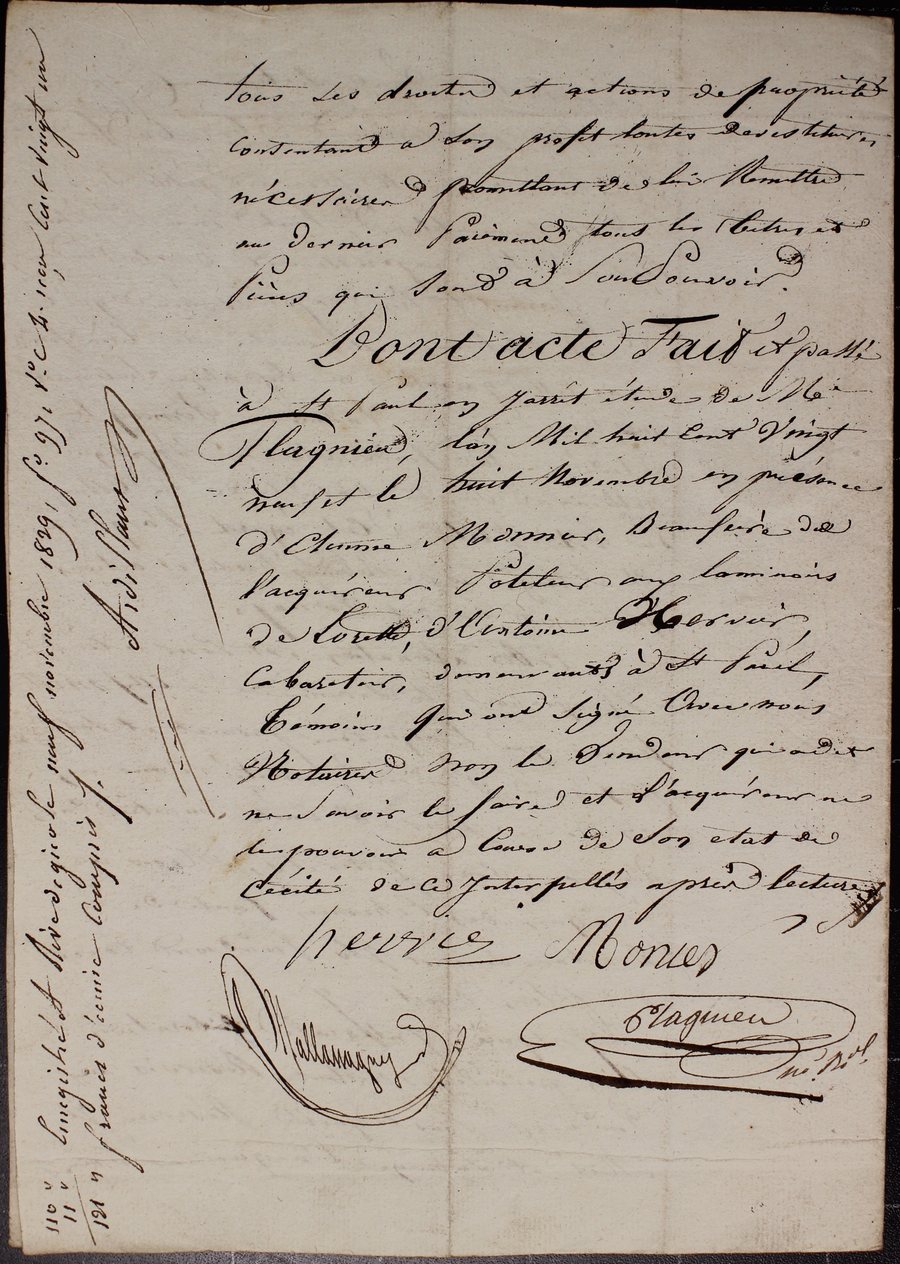 tous ses droits et actions de propriété
consentant à son profit toutes devestitures
nécessaires promettant de lui Remettre
au dernier Paiement tous les titres et
Pièces qui sont à son Pouvoir.
Dont acte Fait et passé
à St Paul en Jarrêt étude de Me
Flagnieu, l'an Mil huit Cent Vingt
neuf et le huit Novembre en présence
d'Etienne Monnier, Beaufrère de
l'acquéreur Potiteur aux laminoirs
de Lorette, d'Antoine Hervier,
Cabaretier, demeurants à St Paul,
Témoins qui ont signé Avec nous
Notaires non le Vendeur qui a dit
ne Savoir le faire et l'acquéreur ne
le pouvoir a Cause de Son etat de
Cécité de ce Interpellés après lecture
hervier Monier
Mallassagny
Flagnieu
no. Rol.
Enregistré A Rive de gier le neuf novembre 1829, fo. 97, Vo. C. 2. reçu Cent vingt un
francs décime compris /.
110 "
11 "
121 "